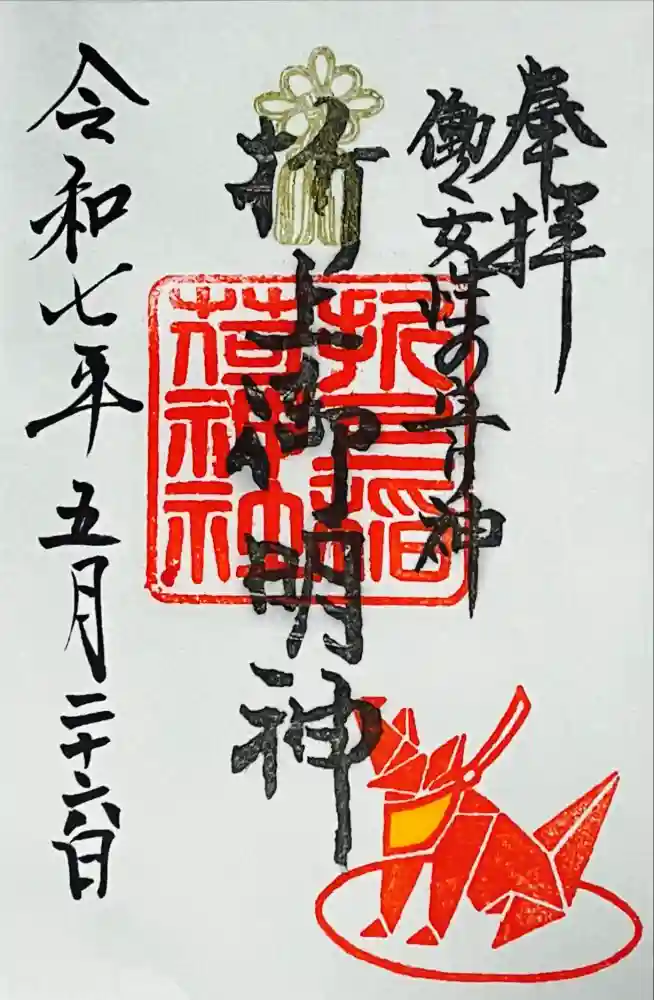 奉拝
働く女性の守り神
折上御明神
折上稲荷神社
令和七年 五月二十六日